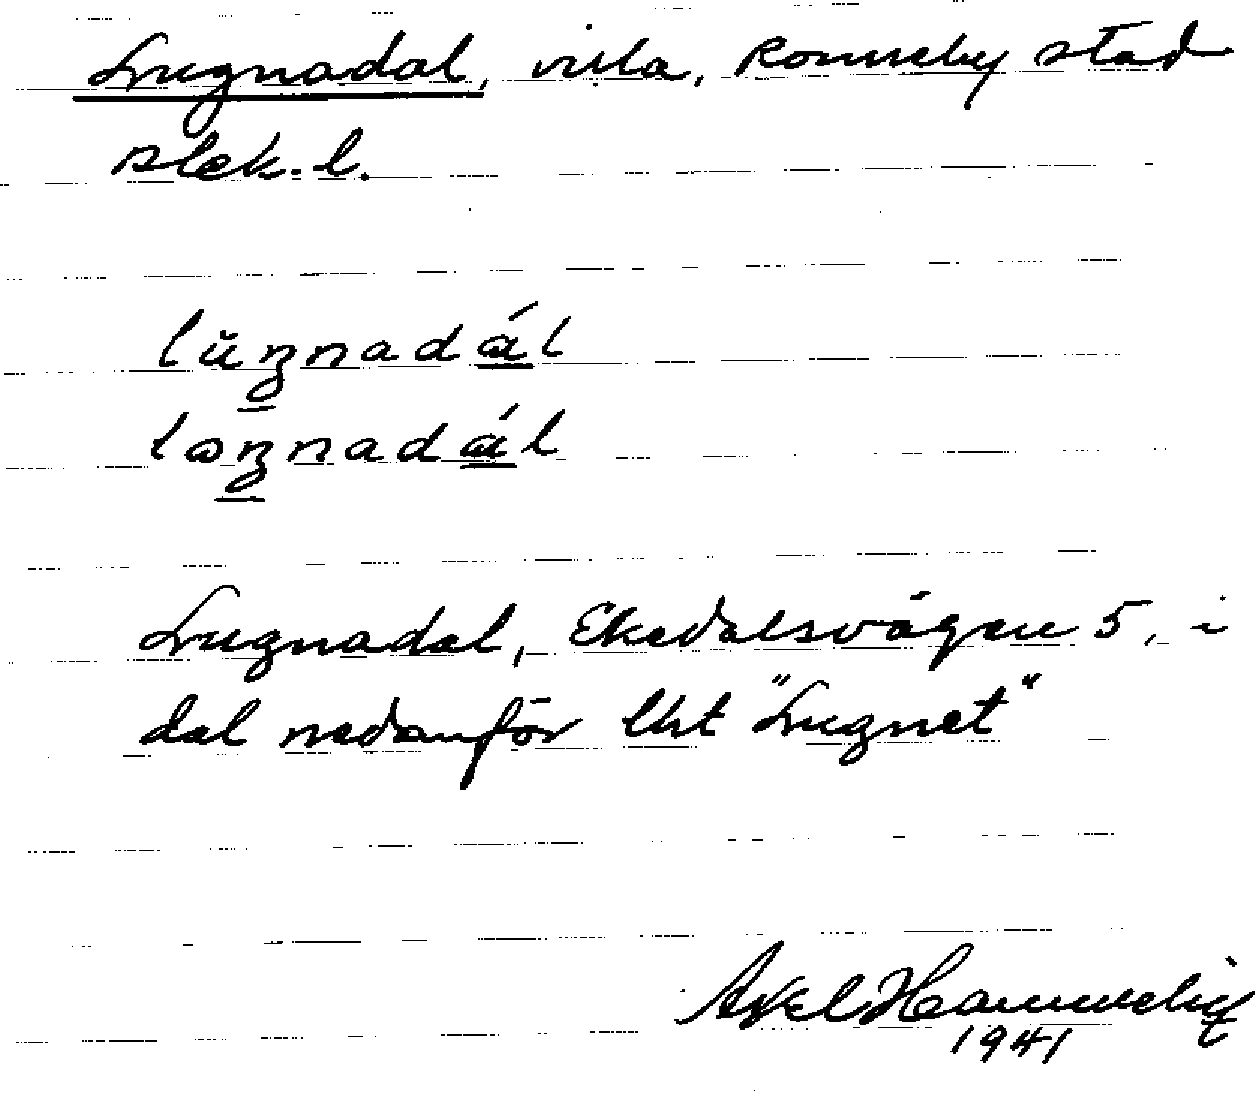 Lugnadal, villa, Ronneby stad
Blek. l.
lŭŋnadál
ləŋnadál
Lugnadal, Ekedalsvägen 5, i
dal nedanför lht "Lugnet"
Axel
1941